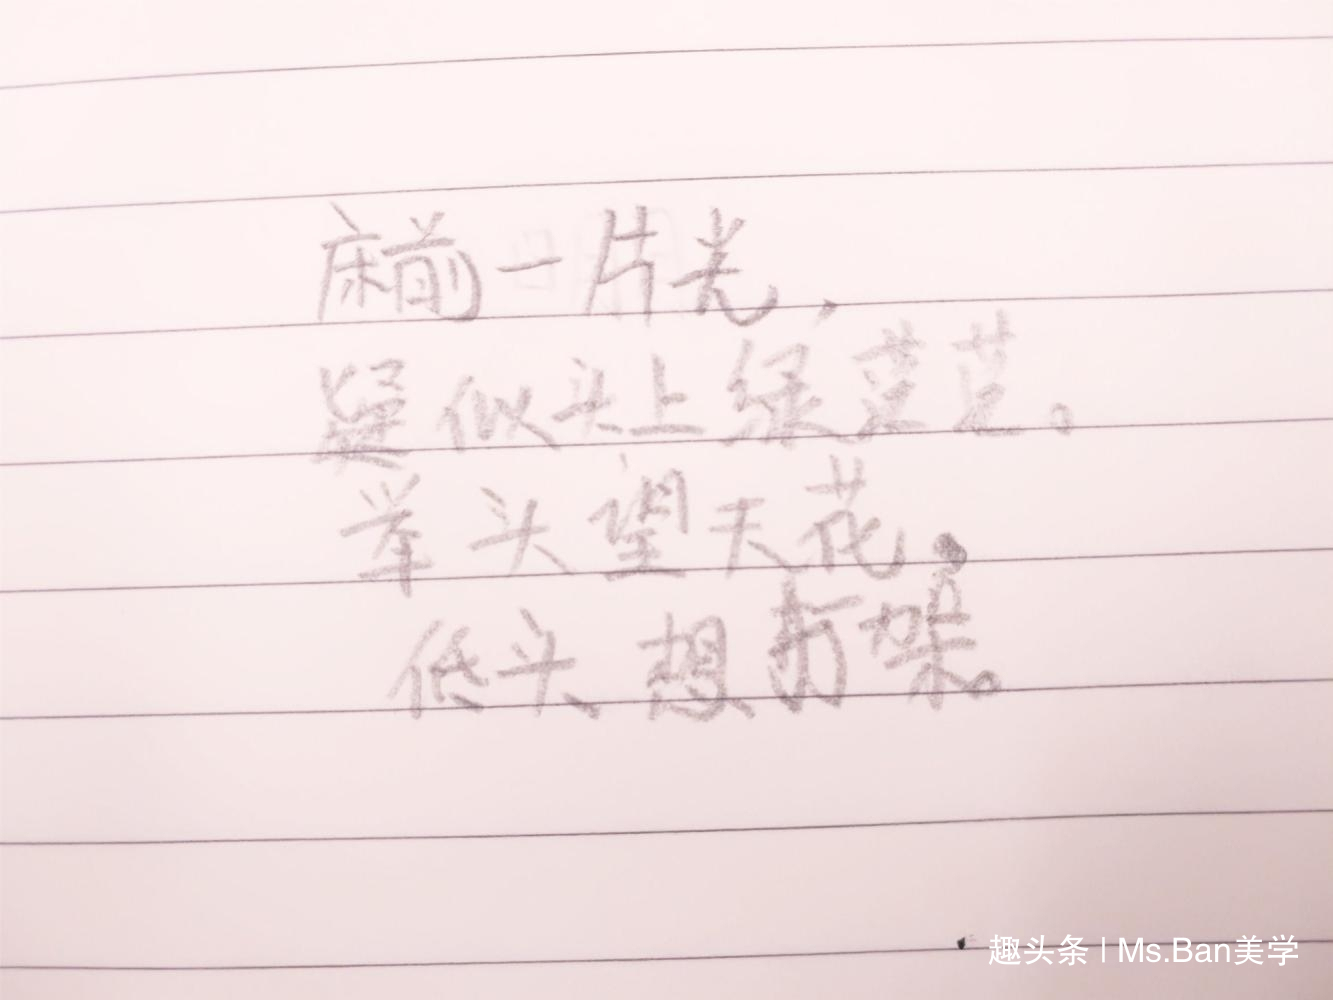 床前一片光，
疑似头上绿莹莹。
举头望天花，
低头想打架。
趣头条 | Ms.Ban美学